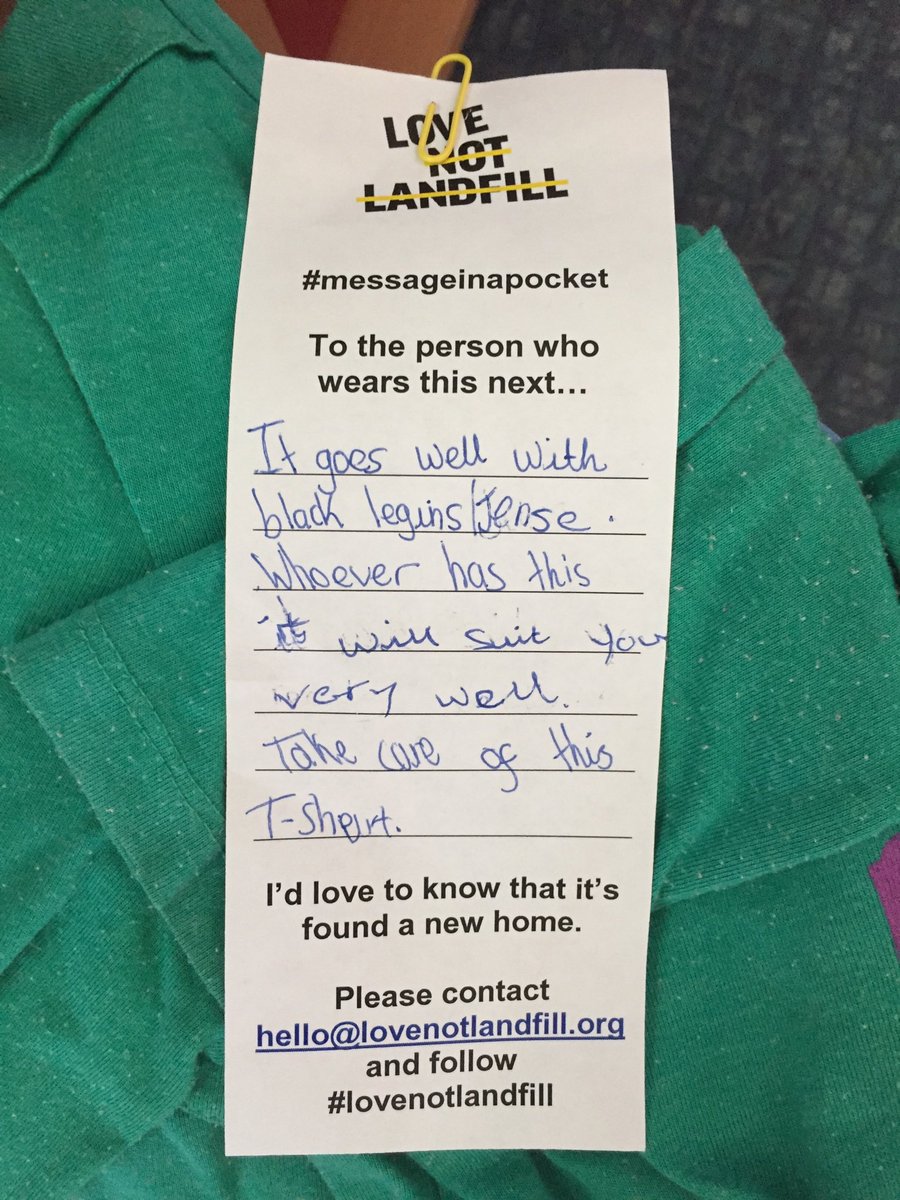 LOVE
NOT
LANDFILL
#messageinapocket
To the person who
wears this next…
It goes well with
black legins/Jense.
Whoever has this
it will suit you
very well.
Take care of this
T-Shert.
I'd love to know that it's
found a new home.
Please contact
hello@lovenotlandfill.org
and follow
#lovenotlandfill